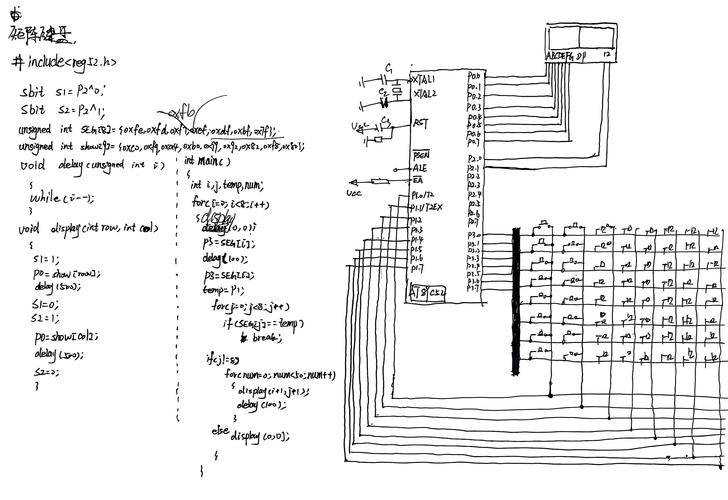 矩阵键盘
# include<reg52.h>
sbit s1=P2^0;
sbit s2=P2^1;
0xfb
unsigned int SEG[8]={0xfe,0xfd,0xf7,0xef,0xdf,0xbf,0x7f};
void delay(unsigned int i)
{
while(i--);
}
void display(int row, int col)
{
s1=1;
p0=show[row];
delay(500);
s1=0;
s2=1;
p0=show[col];
delay(500);
s2=0;
}
int main()
{
int i,j,temp,num;
for(i=0; i<8;i++)
{
(0,0);
P3=SEG[i];
delay(100);
temp=P1;
for(j=0;j<8;j++)
if(SEG[j]==temp)
break;
for(num=0;num<50;num++)
{
display(i+1,j+1);
delay(100);
}
else
display(0,0);
{
}
C1
C2
C3
Vcc
Vcc
XTAL1
XTAL2
RST
PSEN
ALE
EA
P1.0/T2
P1.1/T2EX
P1.2
P1.3
P1.4
P1.5
P1.6
P1.7
AT89C52
P0.0
P0.1
P0.2
P0.3
P0.4
P0.5
P0.6
P0.7
P2.0
P2.1
P2.2
P2.3
P2.4
P2.5
P2.6
P2.7
P3.0
P3.1
P3.2
P3.3
P3.4
P3.5
P3.6
P3.7
ABCDEFG DP
12